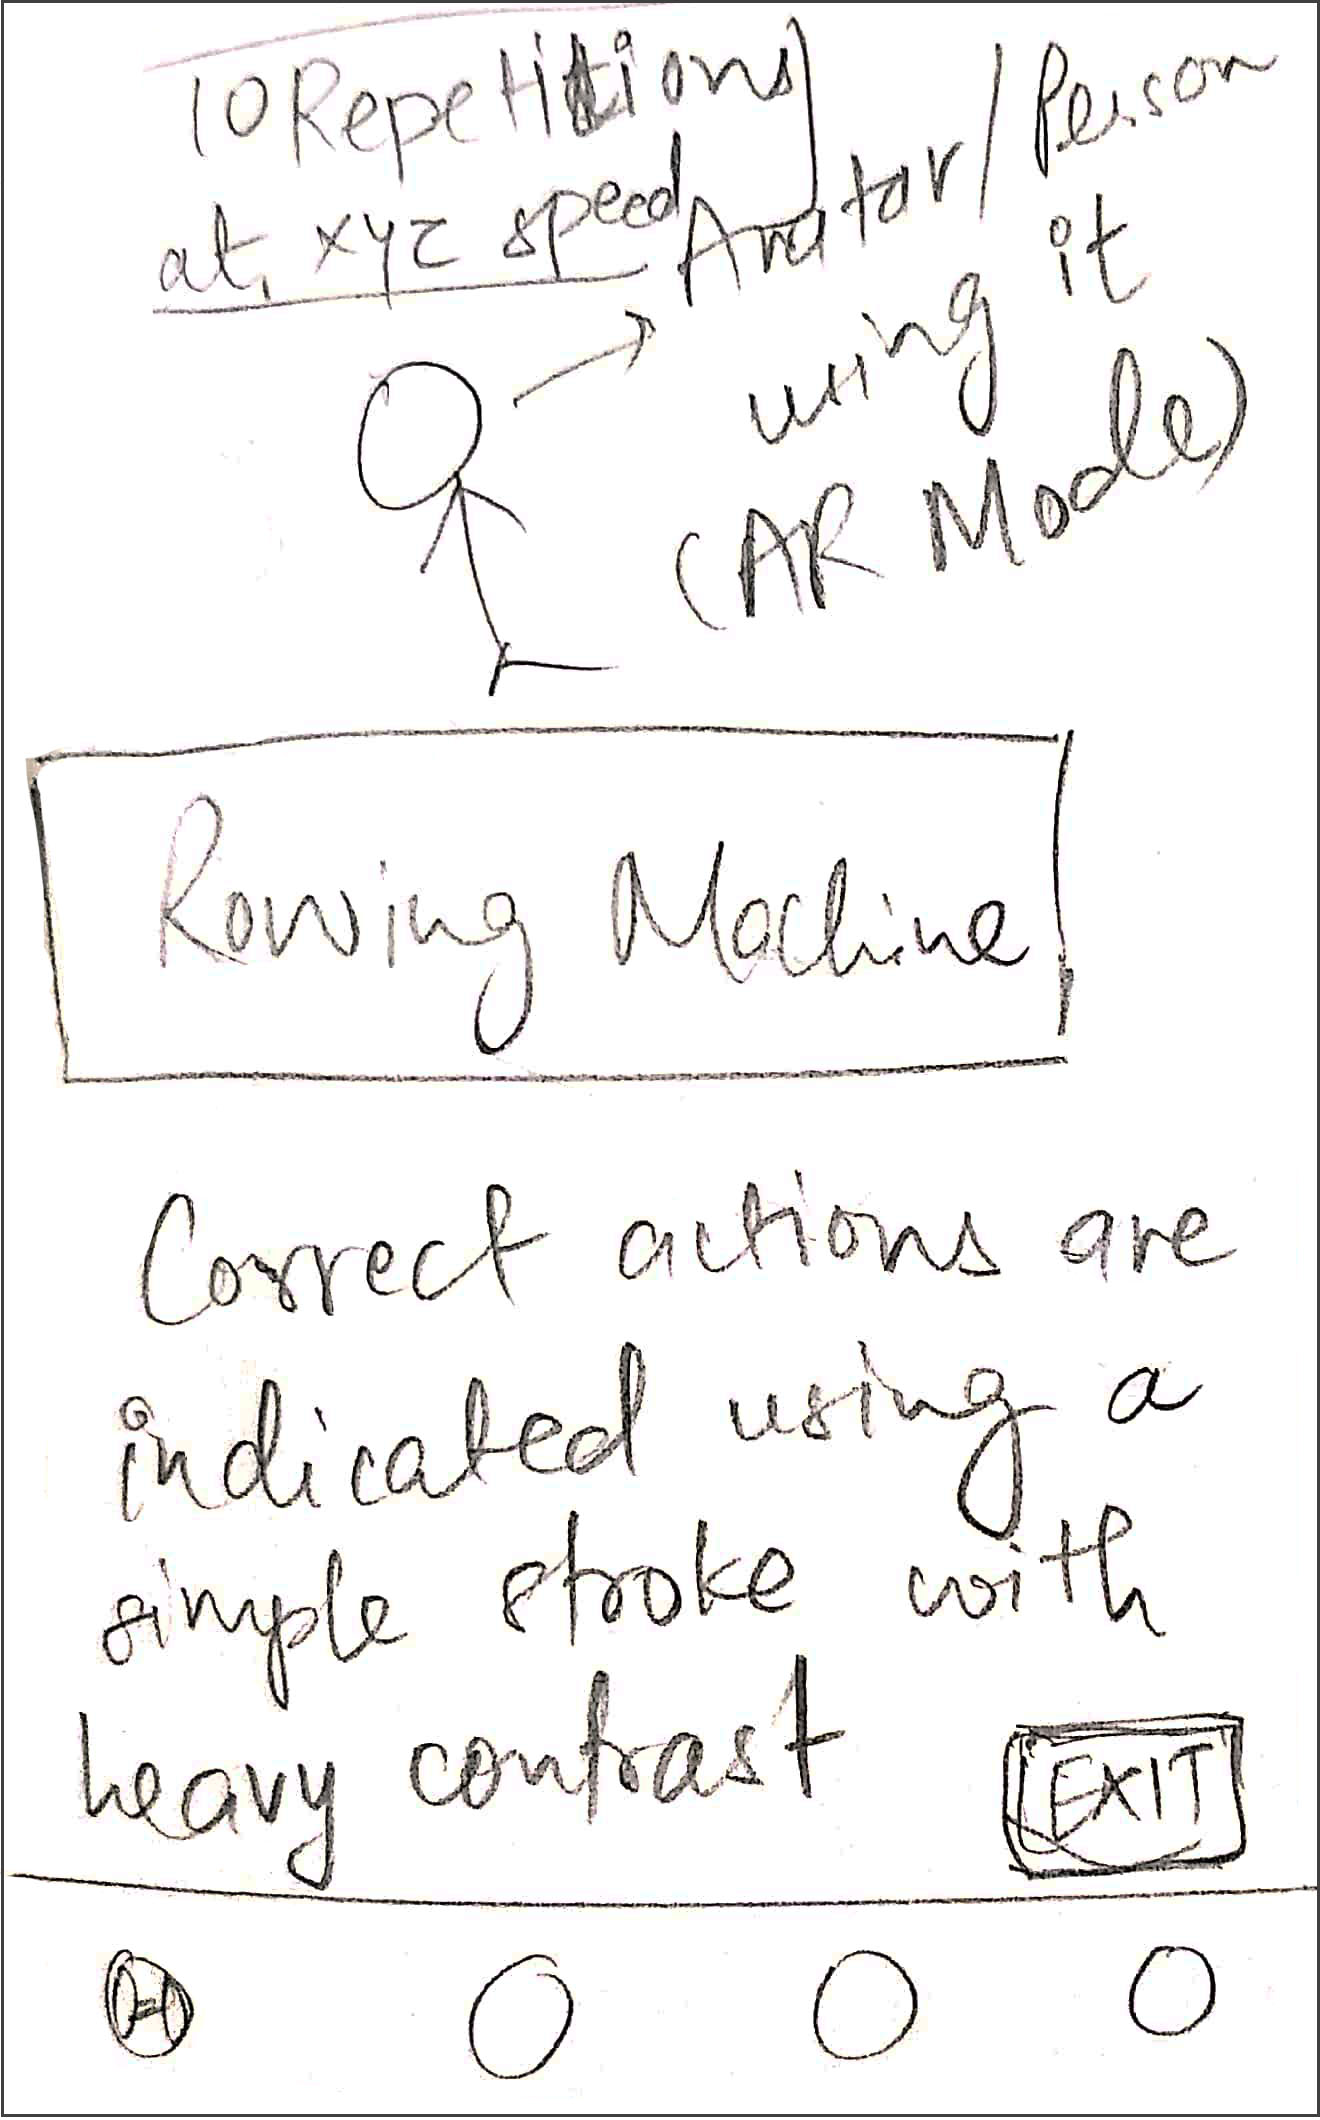 10 Repetitions
at xyz speed
Avatar/Person
using it
(AR Mode)
Rowing Machine
Correct actions are
indicated using a
simple stroke with
heavy contrast
EXIT